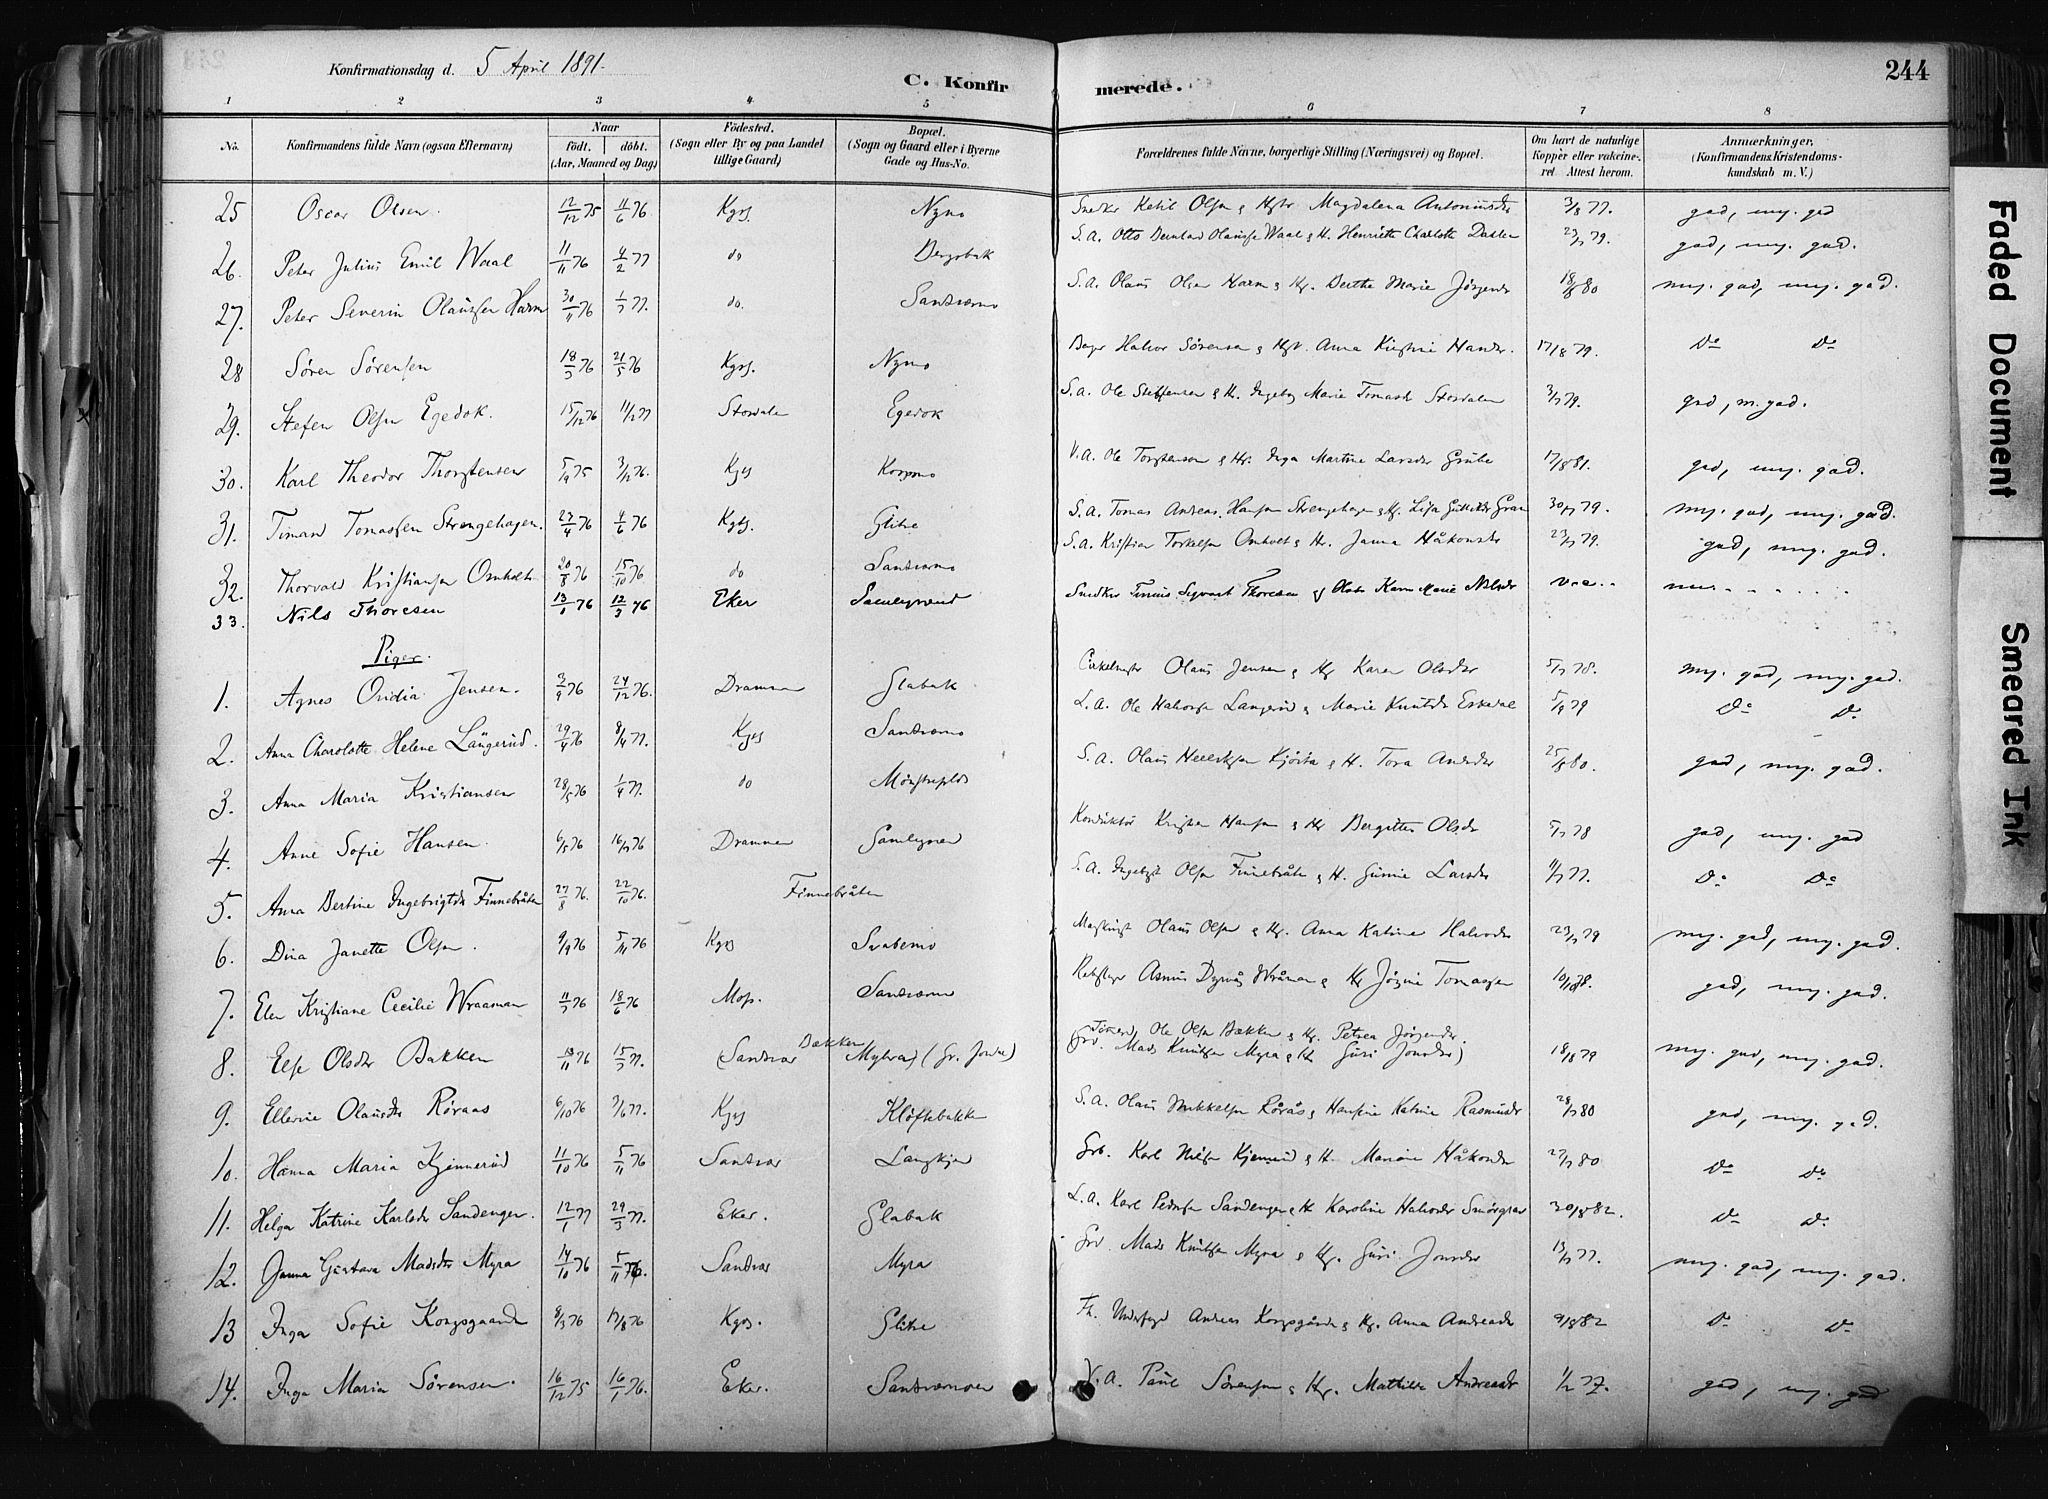 Konfirmationsdag d. 5 April 1891.
C. Konfirmerede.
244
1 2 3 4 5 6 7 8
No. Konfirmandens fulde Navn (ogsaa Efternavn) Naar födt. döbt. (Aar, Maaned og Dag) Födested. (Sogn eller By og paa Landet tillige Gaard) Bopæl. (Sogn og Gaard eller i Byerne Gade og Hus-No. Forældrenes fulde Navne, borgerlige Stilling (Næringsvei) og Bopæl. Om havt de naturlige Kopper eller vakcineret Attest herom. Anmærkninger. (Konfirmandens Kristendomskundskab m. V.)
25 Oscar Olsen. 12/12 75 11/6 76 Kgsg. Nymo Snedker Ketil Olsen & Hstr Magdalena Antoniusdr 3/8 77. god, mg. god
26. Peter Julius Emil Waal 11/11 76 4/2 77 do Bergsbak S.A. Otto Berntsen Olausse Waal & H. Henriette Charlotte 23/7 79. god, mg. god.
27. Peter Severin Olaussen Harm 30/11 76 1/7 77. do. Sandsværmo S.A. Olaus Olsen Harm & Hr. Berthe Marie Jörgensdr 18/8 80 mg. god, mg. god.
28 Sören Sörensen 18/3 76 21/5 76 Kgsg. Nymo Halvor Sörensen & Hst. Anna Kirstine Hansdr. 17/8 79. Do Do
29. Stefen Olsen Egedok. 15/12 76 11/2 77 Stordalen Egedok S.A. Ole Steffensen & H. Ingeborg Marie Tomasdr Stordalen 3/7 79. god, m. god.
30. Karl Theodor Thorstensen 5/9 75 3/12 76. Kgsg Korpmo V.A. Ole Torstensen & Hr. Inga Martine Larsdr Grube 17/8 81. god, mg. god.
31. Timand Tomassen Strengehagen. 27/4 76 4/6 76 Kgbg. Glitre S.A. Tomas Andreas Hansen Strengehagen & Hr. Lisa Gulliksdr Gran 30/7 79. mg. god, mg. god.
32. Thorvald Kristiansen Omholt 20/8 76 15/10 76 do Sandsværmo S.A. Kristian Torkelsen Omholt & Hr. Janna Håkonsdr 23/7 79. god, mg. god.
33. Nils Thoresen 13/1 76 12/3 76 Eker Samlegrend Snedker Tinius Sigvart Thoresen og Karen Marie Nilsdr vac.. mg. . . . .
Piger.
1. Agnes Ovidia Jensen. 3/9 76 24/12 76. Drammen Glabak Olaus Jensen & Hr Karen Olsdr 5/7 78. mg. god, mg. god.
2. Anna Charolotte Helene Langerud. 29/4 76 8/4 77. Kgsg Sandsværmo L.A. Ole Halvorsen Langerud & Marie Knutsdr Eskedal 5/9 79 Do Do
3. Anna Maria Kristiansen 28/5 76 1/4 77. do S.A. Olaus & H. Tora Andersdr 25/8 80. god, mg. god.
4. Anne Sofie Hansen. 6/5 76 16/7 76 Drammen Samlegrend Konduktör Kristen Hansen & Hr Bergitte Olsdr 5/7 78 god, mg. god
5. Anna Bertine Ingebrigtdr Finnebråten 27/8 76. 22/10 76. Finnebråten S.A. Ingebrigt Olsen Finnebråten & H. Gunnie Larsdr 11/7 77. Do Do
6. Dina Janette Olsen. 9/9 76 5/11 76 Kgsg Svabemo Olaus Olsen & Hr. Anna Katrine Halvorsdr 23/7 79 mg. god, mg. god.
7. Elen Kristiane Cecilie Wraaman 11/3 76 18/6 76 Moss. Sandsværmo Rebslager Asmus Wråman & Hr Jörgine Tomassen 10/10 78. god, mg. god.
8. Else Olsdr Bakken 76 15/7 77. (Sandsvær Bækken Myhra) (Gr. Jonsd) Tömmerm. Ole Olsen Bækken & Hr. Petrea Jörgensdr.
Grd. Mads Knutsen Myra & Hr Guri Jonsdr) 18/8 79 mg. god, mg. god.
9. Ellevine Olausdr Röraas 6/10 76 3/6 77. Kgsg Klöftebakken S.A. Olaus Mikkelsen Rörås & Hansine Katrine Rasmusdr 28/7 80 god, mg. god.
10. Hanna Maria Kjennerud 11/10 76 5/11 76 Sandsvær Langkjen Grb. Karl Nilsen Kjennerud & H. Mariane Håkonsdr 27/7 80 Do Do
11. Helga Katrine Karlsdr Sandengen. 12/1 77 29/3 77. Eker. Glabak L.A. Karl Pedersen Sandengen & H Karoline Halvorsdr Smörgrav 30/8 82. Do Do
12. Janna Gustava Madsdtr Myra 14/10 76 5/11 76. Sandsvær Myra Grd. Mads Knutsen Myra & Hr. Guri Jonsdr 13/7 77. mg. god, mg. god.
13 Inga Sofie Kongsgaard 8/3 76 17/8 76 Kgsg. Glitre Fh. Andreas Kongsgården & Hr. Anna Andreasdr 9/8 82 Do Do
14. Inga Maria Sörensen. 16/12 75 16/1 76. Eker. Sandsværmoen V.A. Paul Sörensen & Hr. Mathilde Andreasdr 1/2 77. god, mg. god
Faded Document
Smeared Ink